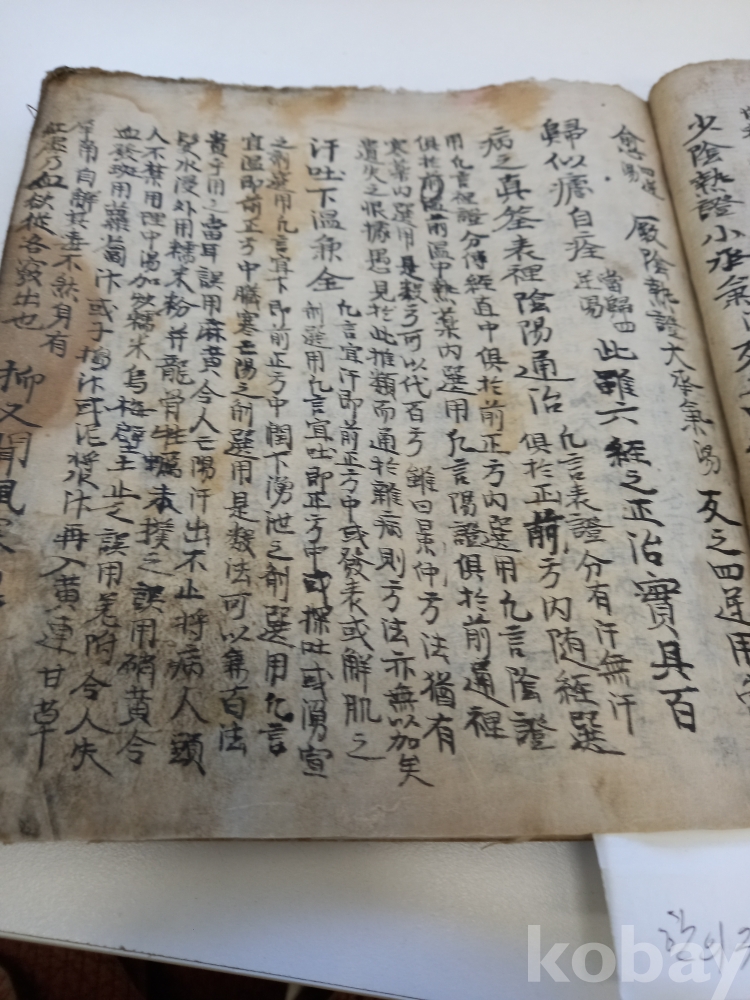 少陰熱證小承氣
厥陰熱證大承氣湯 反之四逆用當
歸似瘧自痊 當歸四逆湯 此雖六經之正治實具百
病之真筌表裡陰陽通治 凡言表證分有汗無汗
俱於正前方內隨經選
用凡言裡證分傳經直中俱於前正方內選用凡言陰證
俱於前溫中熱藥內選用凡言陽證俱於前通裡
寒藥內選用是數方可以代百方雖曰景仲方法猶有
遺失之恨據愚見於此推類而通於雜病則方法亦無以加矣
汗吐下溫兼全 凡言宜汗即前正方中或發表或解肌之
劑選用凡言宜吐即正方中或探吐或湧宣
之劑選用凡言宜下即前正方中潤下湧泄之劑選用凡言
宜溫即前正方中臟寒亡陽之劑選用是數法可以兼百法
貴乎用之當耳誤用麻黃令人亡陽汗出不止將病人頭
髮水浸外用糯米粉并龍骨牡蠣末撲之誤用硝黃令
人不禁用理中湯加炒糯米烏梅壁土止之誤用羌附令人失
血發斑用蘿蔔汁或子搗汁或泥漿汁再入黃連甘草
犀角自解其毒不然身有
紅處乃血欲從各竅出也 抑又聞風寒